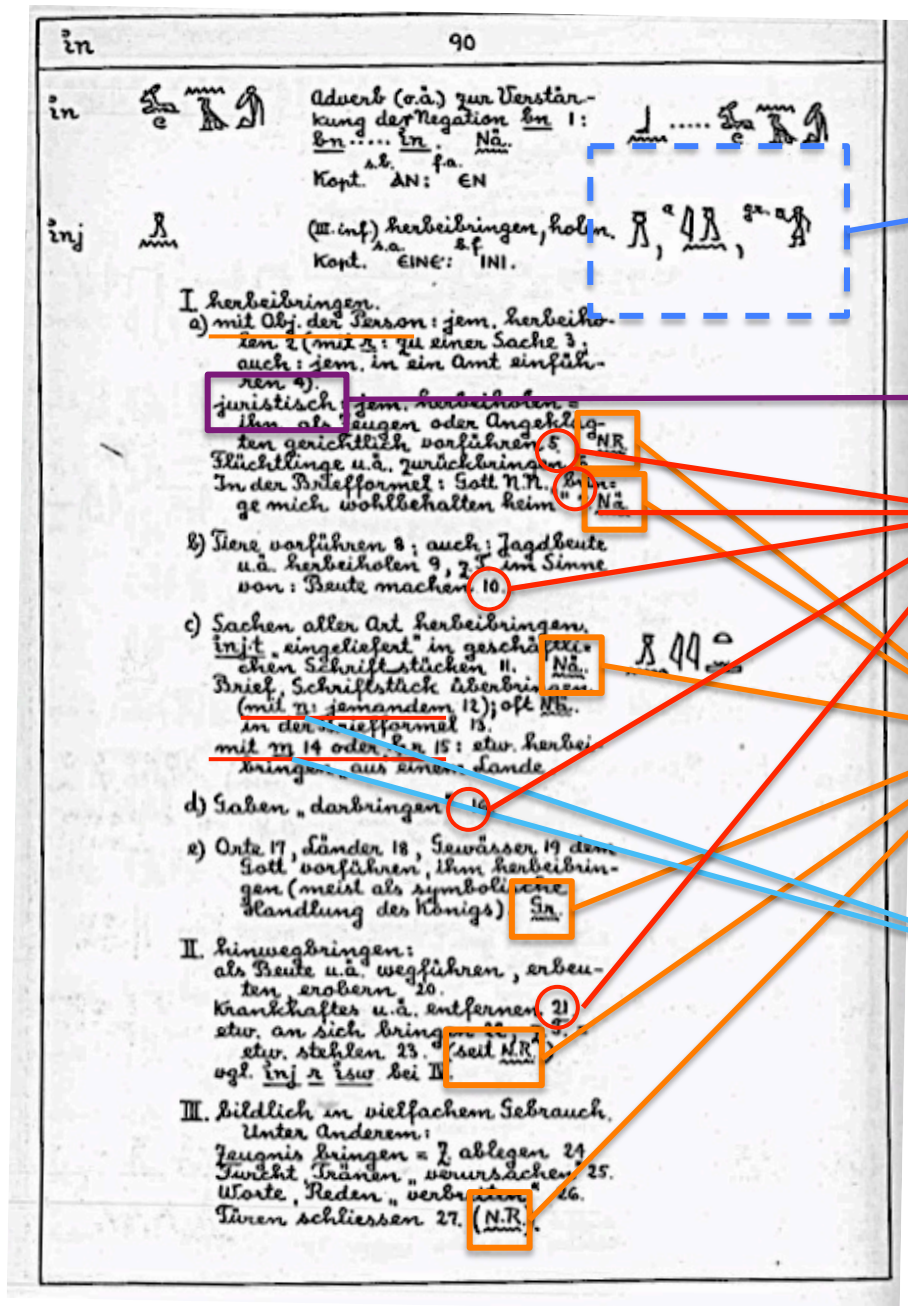 in 90
in Adverb (o.ä.) zur Verstär-
kung der Negation bn 1:
bn ..... in. Nä.
s.b. f.a.
Kopt. AN: ЄN
inj (III. inf.) herbeibringen, holen.
a gr. a
s.a. b.f.
Kopt. ЄINЄ: INI.
I. herbeibringen.
a) mit Obj. der Person: jem. herbeiho-
len 2 (mit r: zu einer Sache 3;
auch: jem. in ein Amt einfüh-
ren 4).
juristisch: jem. herbeiholen =
ihn als Zeugen oder Angeklag-
ten gerichtlich vorführen 5. N.R.
Flüchtlinge u.ä. zurückbringen
In der Briefformel: Gott N.N. „brin-
ge mich wohlbehalten heim" Nä.
b) Tiere vorführen 8; auch: Jagdbeute
u.ä. herbeiholen 9, z.T. im Sinne
von: Beute machen 10.
c) Sachen aller Art herbeibringen.
inj.t „eingeliefert" in geschäftli-
chen Schriftstücken 11. Nä.
Brief, Schriftstück überbringen
(mit n: jemandem 12); oft Nä.
in der Briefformel 13.
mit m 14 oder hr 15: etw. herbei-
bringen „aus einem Lande
d) Gaben „darbringen" 16.
e) Orte 17, Länder 18, Gewässer 19 dem
Gott vorführen, ihm herbeibrin-
gen (meist als symbolische
Handlung des Königs). Gr.
II. hinwegbringen:
als Beute u.ä. wegführen, erbeu-
ten, erobern 20.
Krankhaftes u.ä. entfernen 21
etw. an sich bringen 22,
etw. stehlen 23. (seit N.R.)
vgl. inj r isw bei IV.
III. bildlich in vielfachem Gebrauch.
Unter Anderem:
Zeugnis bringen = Z ablegen 24
Furcht, Tränen „verursachen" 25.
Worte, Reden „verbreiten" 26.
Türen schliessen 27. (N.R.).